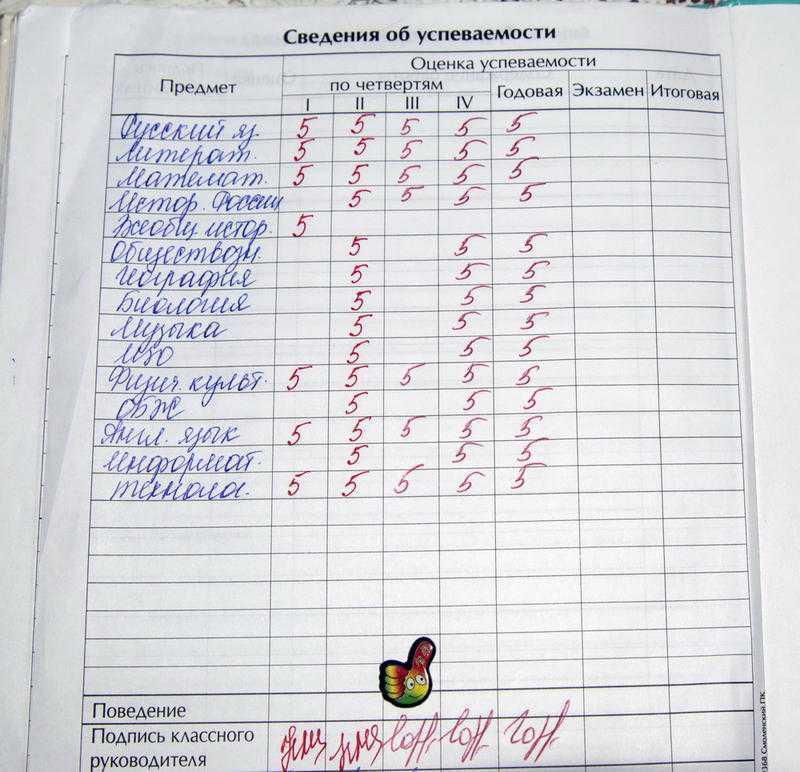 Сведения об успеваемости
Предмет Оценка успеваемости
по четвертям Годовая Экзамен Итоговая
I II III IV
Русский яз. 5 5 5 5 5
Литерат. 5 5 5 5 5
Математ. 5 5 5 5 5
Истор. России 5 5 5 5
Всеобщ истор. 5
Обществозн. 5 5 5
География 5 5 5
Биология 5 5 5
Музыка 5 5 5
ИЗО 5 5 5
Физич. культ. 5 5 5 5 5
ОБЖ 5 5 5
Англ. язык 5 5 5 5 5
Информат. 5 5 5
Технолог. 5 5 5 5 5
Поведение
Подпись классного
руководителя
368 Смоленский ПК